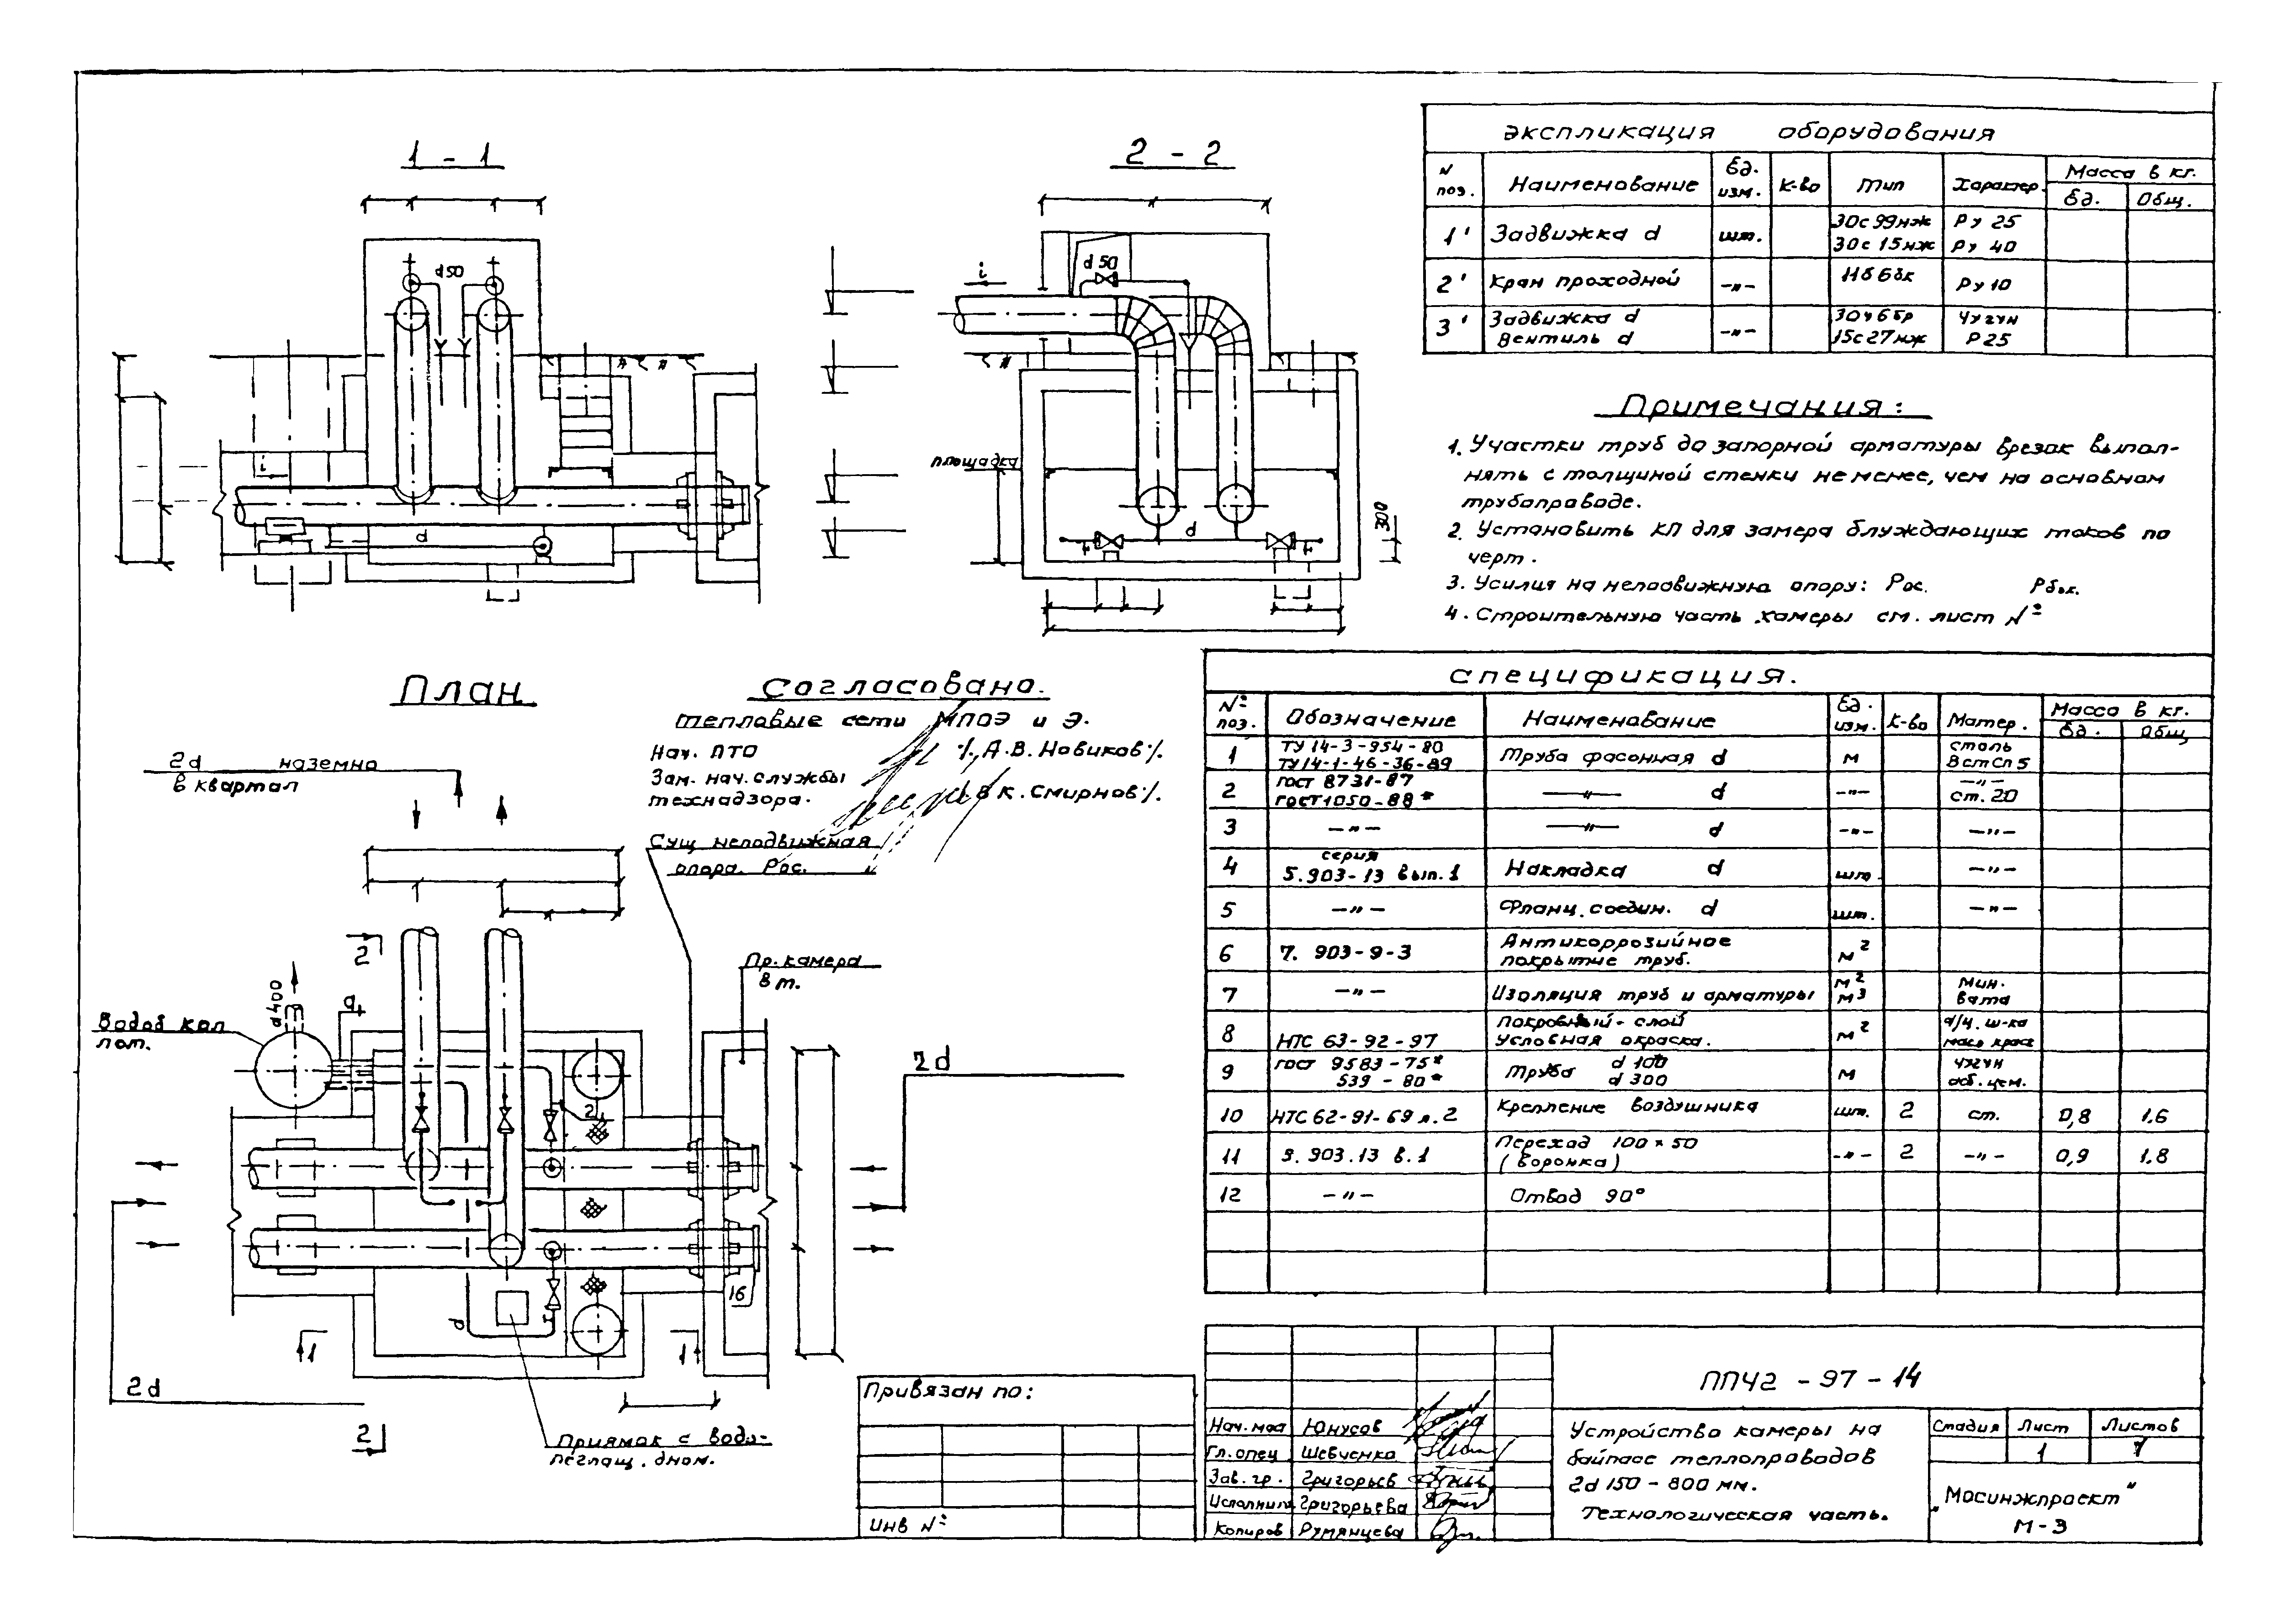 1 - 1
d50
i
d
2 - 2
i
d 50
площадка
d
300
экспликация оборудования
N поз. Наименование Ед. изм. К-во Тип Характер. Масса в кг.
Ед. Общ.
1' Задвижка d шт. 30с99нж Ру 25
30с15нж Ру 40
2' Кран проходной —"— 11б6бк Ру10
3' Задвижка d —"— 30ч6бр Чугун
Вентиль d 15с27нж Р25
Примечания:
1. Участки труб до запорной арматуры врезок выпол-
нять с толщиной стенки не менее, чем на основном
трубопроводе.
2. Установить КП для замера блуждающих токов по
черт.
3. Усилия на неподвижную опору: Рос. Рбок.
4. Строительную часть камеры см. лист №
План
2d наземно
в квартал
Согласовано.
тепловые сети МПОЭ и Э.
Нач. ПТО ⁒ А.В. Новиков ⁒
Зам. нач. службы
технадзора. В К. Смирнов ⁒
Сущ неподвижная
опора. Рос.
2
Пр. камера
в т.
d 400
d
Водов кол
лот.
2d
2
16
d
1
1
2d
2
Приямок с водо-
поглащ. дном.
спецификация.
№ поз. Обозначение Наименование Ед. изм. К-во Матер. Масса в кг.
Ед. Общ
1 ТУ 14-3-954-80 Труба фасонная d м сталь
ТУ14-1-46-36-89 Вст Сп5
2 ГОСТ 8731-87 —"— d —"— —"—
ГОСТ1050-88* ст. 20
3 —"— —"— d —"— —"—
4 серия
5.903-13 вып.1 Накладка d шт. —"—
5 —"— Фланц. соедин. d шт. —"—
6 7. 903-9-3 Антикоррозийное
покрытие труб. м²
7 —"— Изоляция труб и арматуры м² м³ Мин. вата
8 НТС 63-92-97 Покровный слой
Условная окраска. м²
9 ГОСТ 9583-75* Труба d 100 м чугун
539-80* d 300 аб. цем.
10 НТС 62-91-69 л.2 Крепление воздушника шт. 2 ст. 0,8 1.6
11 5.903.13 в.1 Переход 100×50 —"— 2 —"— 0,9 1.8
(воронка)
12 —"— Отвод 90°
Привязан по:
Инв №
Нач. маст Юнусов
Гл. спец Шевченко
Зав. гр. Григорьев
Исполнил Григорьева
Копиров Румянцева
ППЧ2 - 97 - 14
Устройство камеры на
байпасе теплопроводов
2d 150 - 800 мм.
Технологическая часть.
Стадия Лист Листов
1
"Мосинжпроект"
М-3